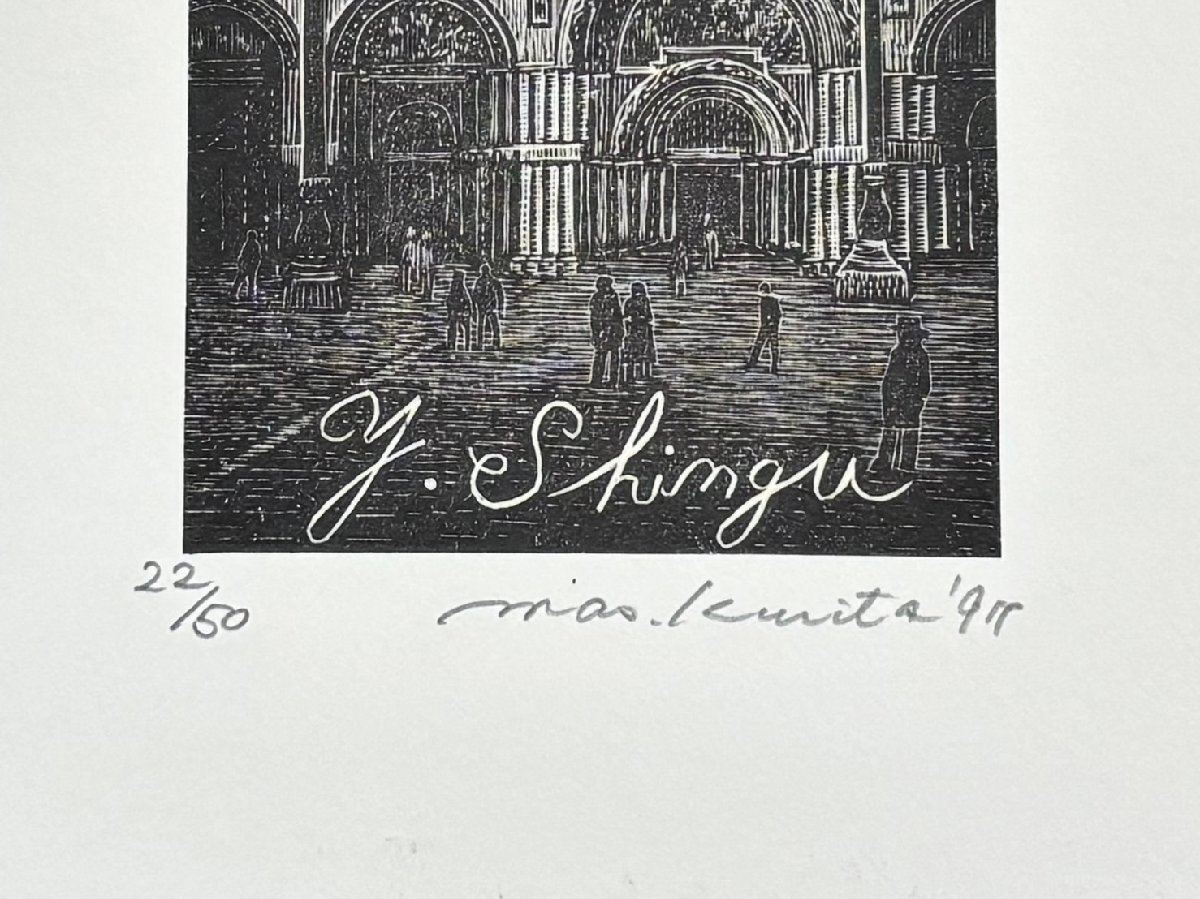 Y. Shingu
22/50
mas. Kurita